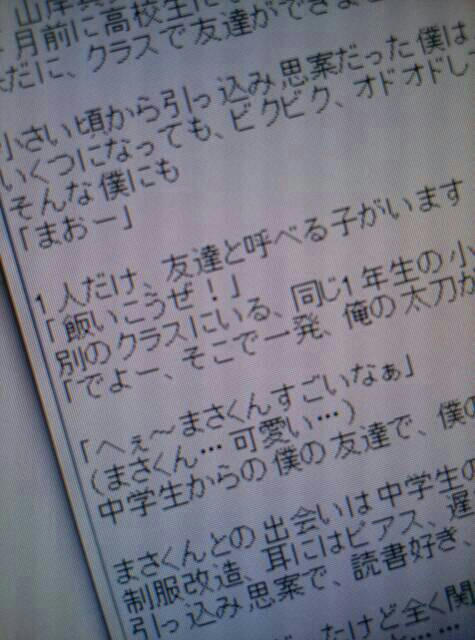 月前に高校生に
だに、クラスで友達ができ
小さい頃から引っ込み思案だった僕は
いくつになっても、ビクビク、オドオドし
そんな僕にも
「まおー」
1人だけ、友達と呼べる子がいます
「飯いこうぜ！」
別のクラスにいる、同じ1年生の小
「でよー、そこで一発、俺の太刀が
「へぇ～まさくんすごいなぁ」
(まさくん…可愛い…)
中学生からの僕の友達で、僕の
まさくんとの出会いは中学生の
制服改造、耳にはピアス、遅
引っ込み思案で、読書好き、
たけど全く関